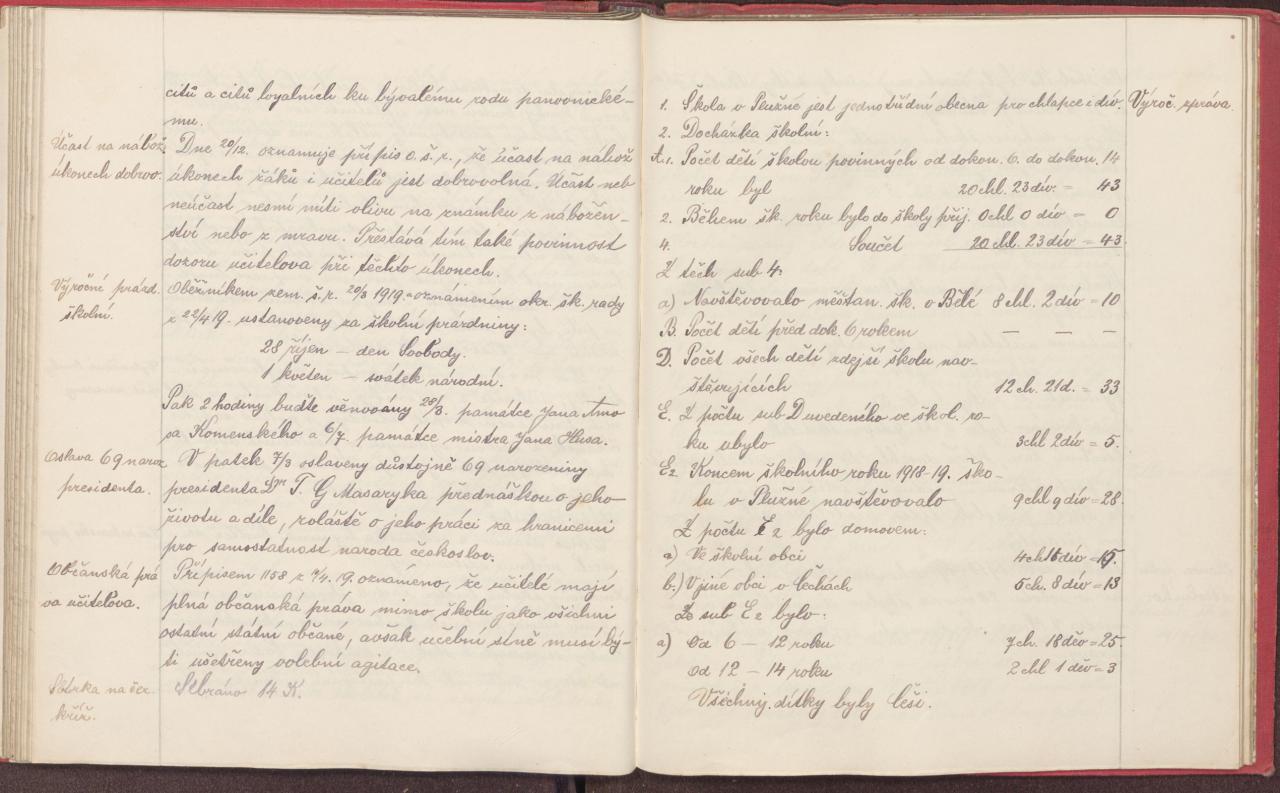 citů a citů loyalních ku bývalému rodu panovnické-
mu.
Účast na nábož.
úkonech dobrov.
Dne 20/12. oznamuje přípis o. š. r., že účast na nábož
úkonech žáků i učitelů jest dobrovolná. Účast neb
neúčast nesmí míti vlivu na známku z nábožen-
ství nebo z mravů. Přestává tím také povinnost
dozoru učitelova při těchto úkonech.
Výroční prázd.
školní.
Oběžníkem zem. š. r. 20/3 1919. oznámením okr. šk. rady
z 22/4 19. ustanoveny za školní prázdniny:
28 říjen – den Svobody.
1 květen – svátek národní.
Pak 2 hodiny buďte věnovány 28/3. památce Jana Amo
sa Komenského a 6/7. památce mistra Jana Husa.
Oslava 69 naroz
presidenta.
V patek 7/3 oslaveny důstojně 69 narozeniny
presidenta Dra T. G Masaryka přednáškou o jeho
životu a díle, zvláště o jeho práci za hranicemi
pro samostatnost naroda českoslov.
Občanská prá
va učitelova.
Přípisem 1158 z 4. 19. oznámeno, že učitelé mají
plná občanská práva mimo školu jako všichni
ostatní státní občané, avšak učební síně musí bý-
ti ušetřeny volební agitace.
Sbírka na čer.
kříž.
Sebráno 14 K.
Výroč. zpráva.
1. Škola v Plužné jest jednotřídní obecna pro chlapce i dív.
2. Docházka školní:
A.1. Počet dětí školou povinných od dokon. 6. do dokon. 14
roku byl 20 chl. 23 dív. = 43
2. Během šk. roku bylo do školy přij. 0 chl 0 dív = 0
4. Součet 20 chl. 23 dív = 43.
Z těch sub 4:
a) Navštěvovalo měšťan. šk. v Bělé 8 chl. 2 dív = 10
B. Počet dětí před dok. 6 rokem — — —
D. Počet všech dětí zdejší školu nav-
štěvujících 12 ch. 21 d. = 33
E. Z počtu sub D uvedeného ve škol. ro-
ku ubylo 3 chl 2 dív = 5.
E2 Koncem školního roku 1918-19. ško-
lu v Plužné navštěvovalo 9 chl 9 dív = 28.
Z počtu E 2 bylo domovem:
a) Ve školní obci 4 ch 11 dív = 15.
b.) V jiné obci v Čechách 5 ch. 8 dív = 13
Ze sub E 2 bylo:
a) Od 6 – 12 roku 7 ch. 18 děv = 25.
od 12 – 14 roku 2 chl 1 děv = 3
Všechny dítky byly češi.